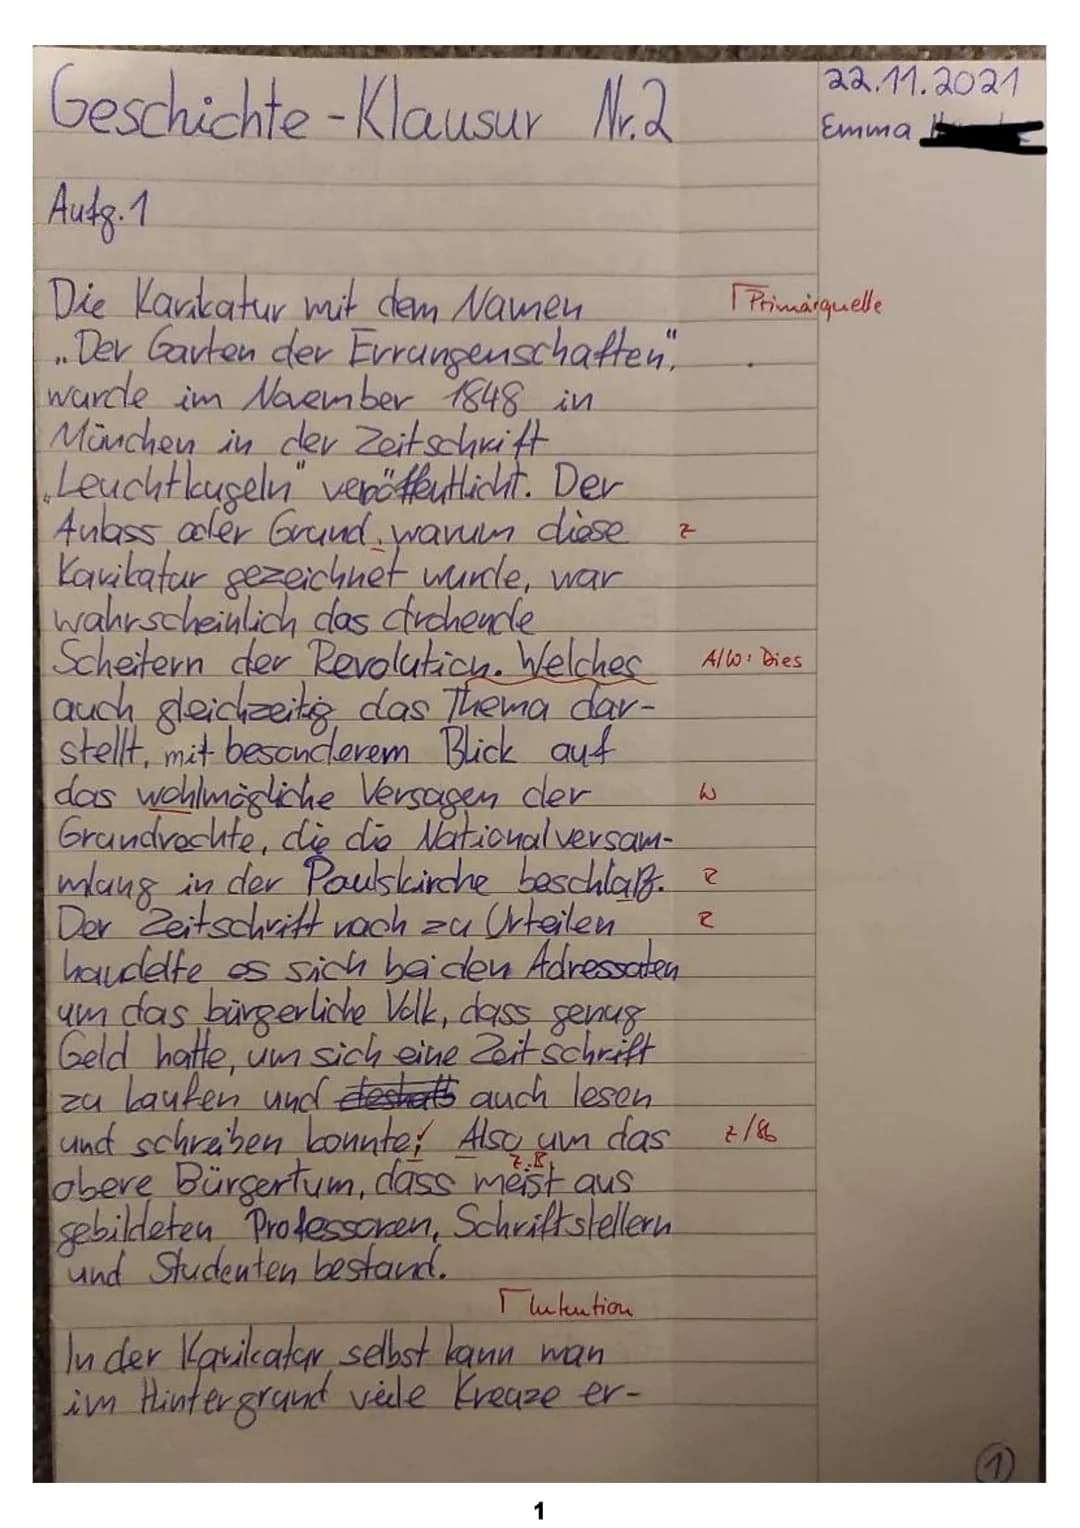 Geschichte-Klausur Nr.2
22.11.2021
Emma
Aufg.1
Die Karikatur mit dem Namen
⌈Primärquelle
„Der Garten der Errungenschaften",
wurde im November 1848 in
München in der Zeitschrift
„Leuchtkugeln" veröffentlicht. Der
Anlass oder Grund, warum diese Z
Karikatur gezeichnet wurde, war
wahrscheinlich das drohende
Scheitern der Revolution. Welches A/W: Dies
auch gleichzeitig das Thema dar-
stellt, mit besonderem Blick auf
das wohlmögliche Versagen der W
Grundrechte, die die Nationalversam-
mlung in der Paulskirche beschlaß. R
Der Zeitschrift nach zu Urteilen R
handelte es sich bei den Adressaten
um das bürgerliche Volk, dass genug
Geld hatte, um sich eine Zeitschrift
zu kaufen und deshalb auch lesen
und schreiben konnte. Also um das Z/Sb
z.B.
obere Bürgertum, dass meist aus
gebildeten Professoren, Schriftstellern
und Studenten bestand.
⌈Intention
In der Karikatur selbst kann man
im Hintergrund viele Kreuze er-
1
1